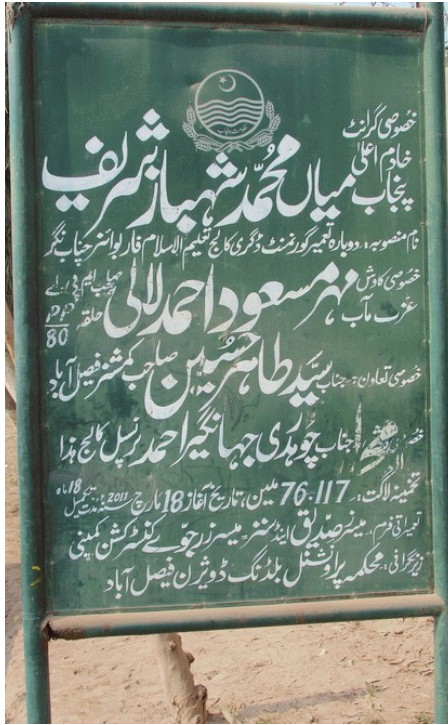 حکومت پنجاب
خصوصی گرانٹ
خادم اعلیٰ پنجاب میاں محمد شہباز شریف
نام منصوبہ: دوبارہ تعمیر گورنمنٹ ڈگری کالج تعلیم الاسلام فار بوائز چناب نگر
خصوصی کاوش عزت مآب مہر مسعود احمد لالی صاحب ایم پی اے حلقہ 80
خصوصی تعاون: جناب سید طاہر حسین صاحب کمشنر فیصل آباد
جناب چوہدری جہانگیر احمد پرنسپل کالج ہذا
تخمینہ لاگت: 76.117 ملین، تاریخ آغاز 18 مارچ 2011 مدت تکمیل 18 ماہ
تعمیراتی فرم: میسرز صدیق اینڈ سنز، میسرز جوئے کنسٹرکشن کمپنی
زیر نگرانی: محکمہ پراونشل بلڈنگ ڈویژن فیصل آباد